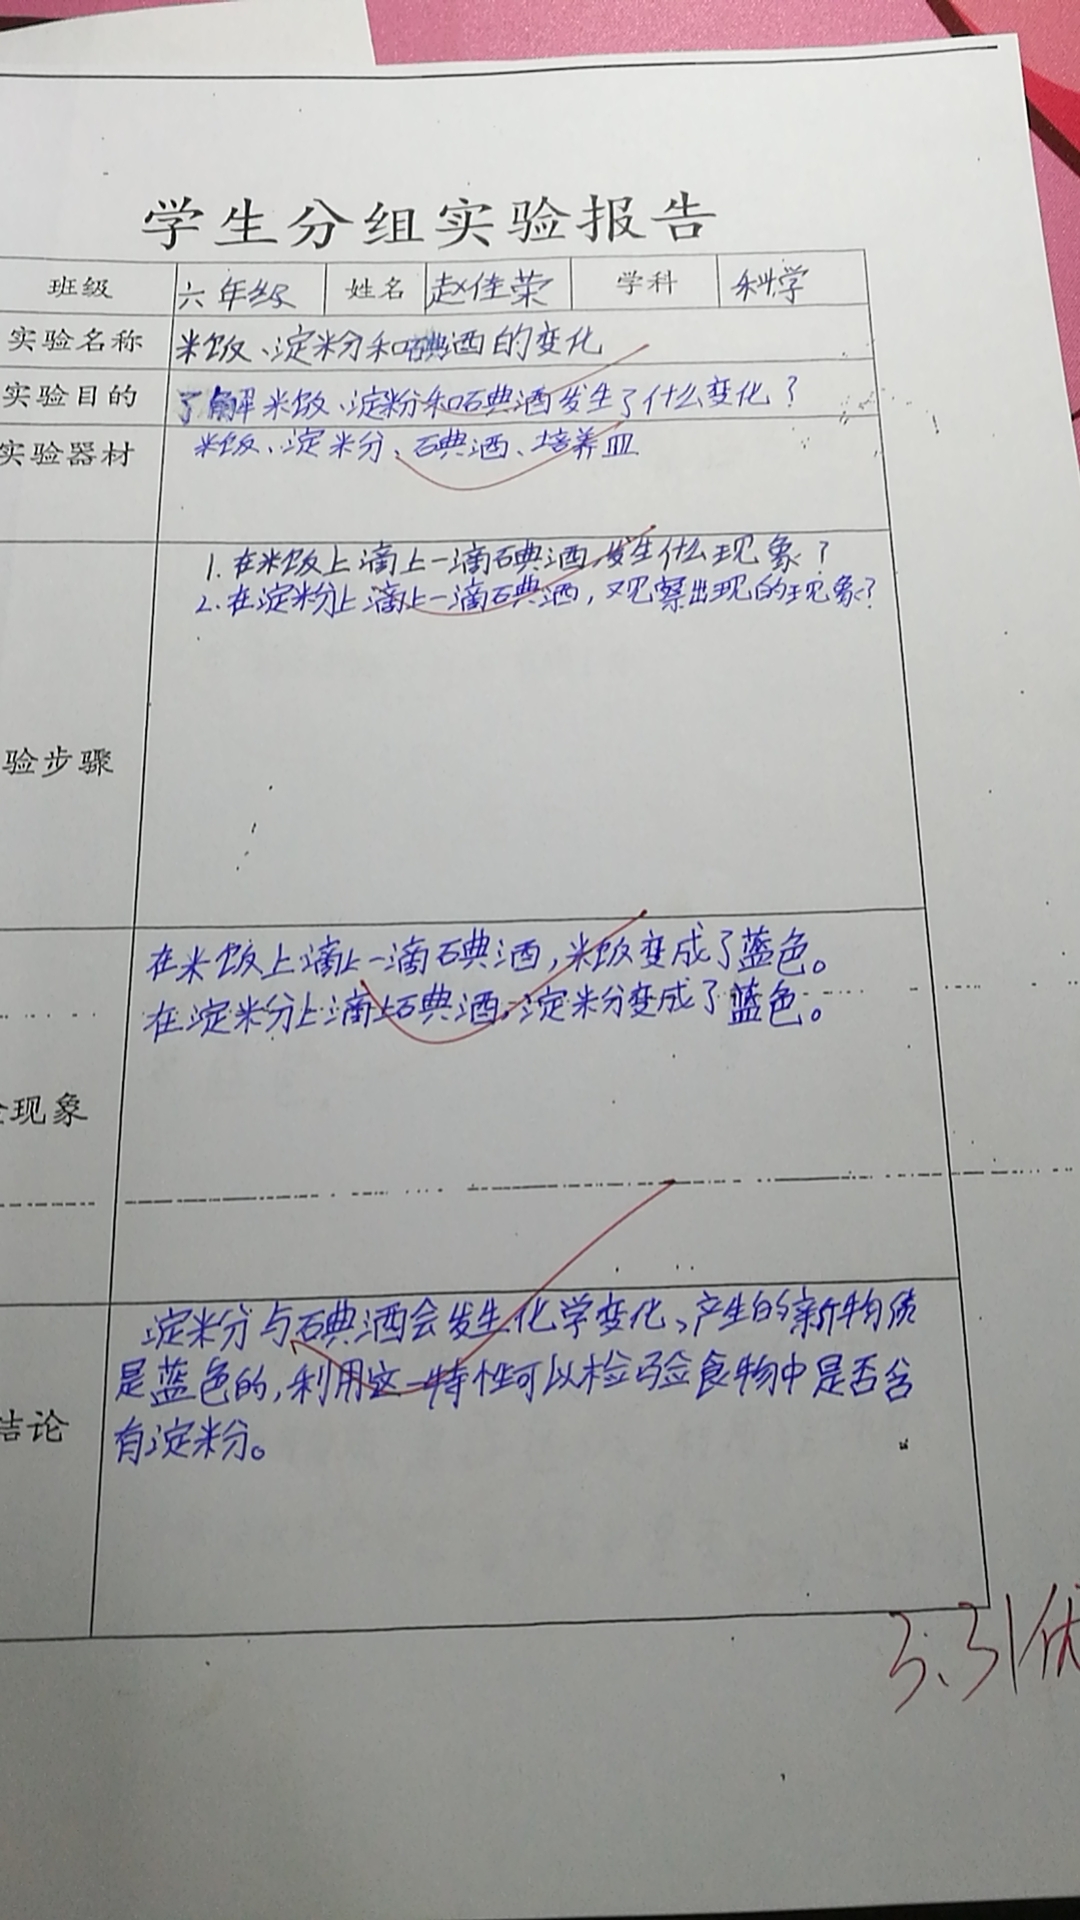 学生分组实验报告
班级 六年级 姓名 赵佳荣 学科 科学
实验名称 米饭、淀粉和碘酒的变化
实验目的 了解米饭、淀粉和碘酒发生了什么变化?
实验器材 米饭、淀粉、碘酒、培养皿
1.在米饭上滴上一滴碘酒,发生什么现象?
2.在淀粉上滴上一滴碘酒,观察出现的现象?
验步骤
在米饭上滴上一滴碘酒,米饭变成了蓝色。
在淀粉上滴上碘酒,淀粉变成了蓝色。
现象
淀粉与碘酒会发生化学变化、产生的新物质
是蓝色的,利用这一特性可以检验食物中是否含
有淀粉。
结论
3.31优